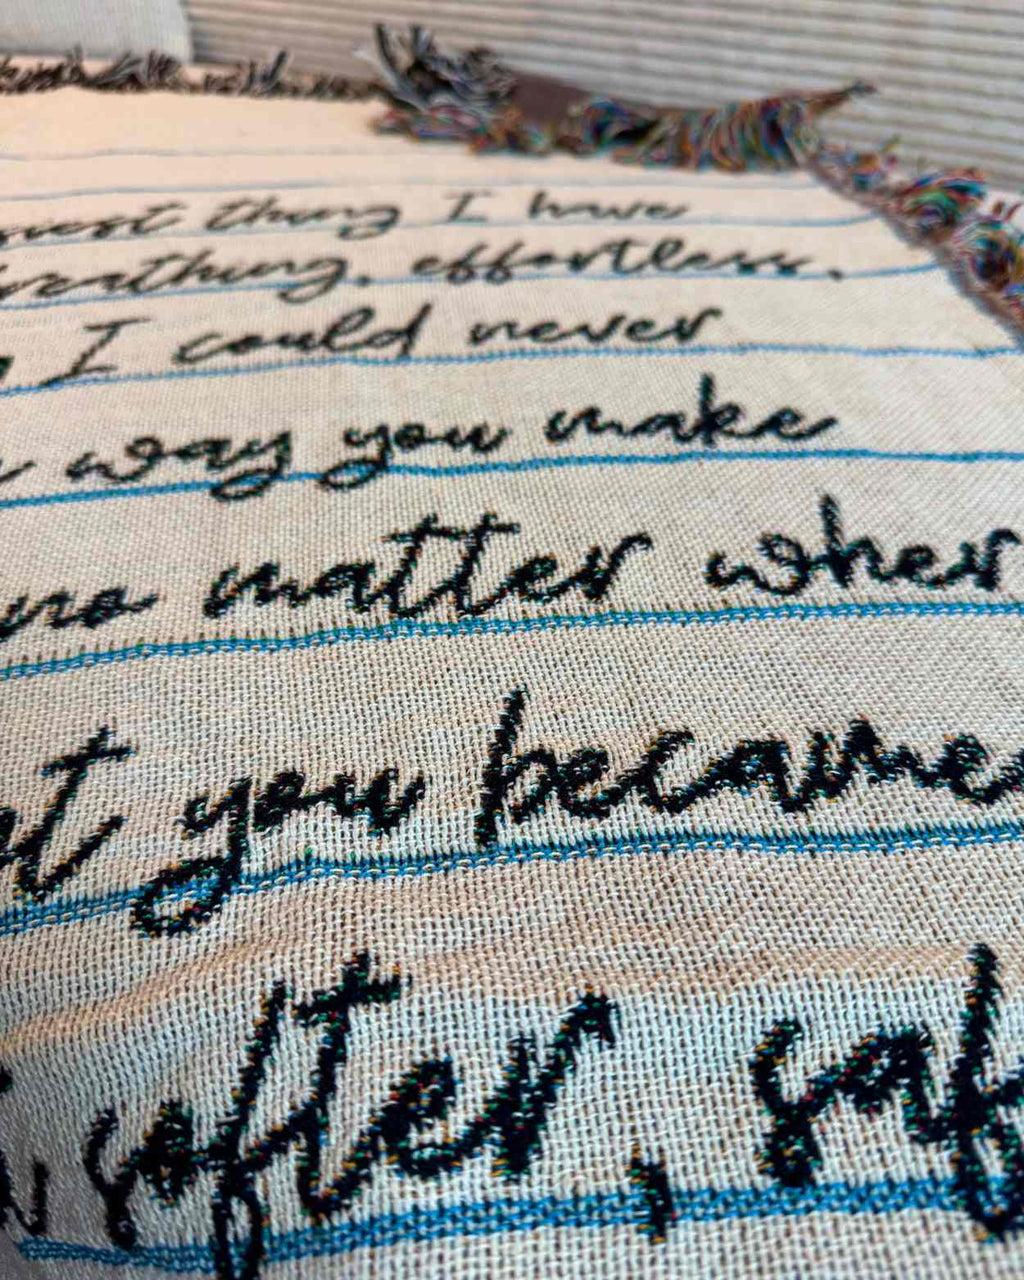 thing I have
breathing, effortless.
I could never
way you make
no matter wher
you became
softer, saf